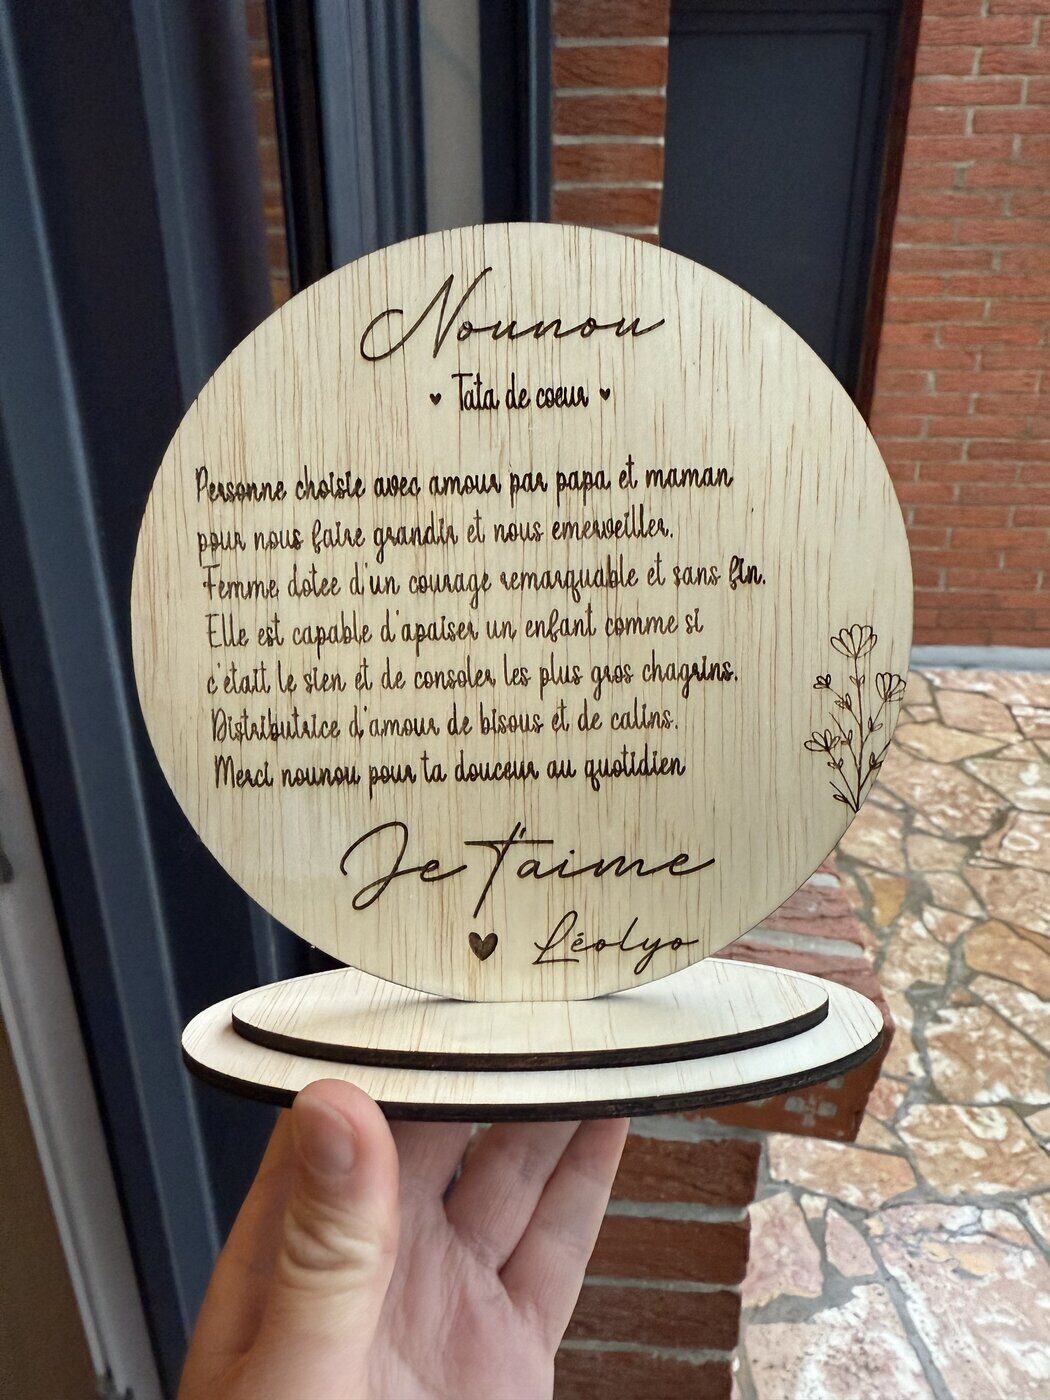 Nounou
♥ Tata de coeur ♥
Personne choisie avec amour par papa et maman
pour nous faire grandir et nous emerveiller.
Femme dotee d'un courage remarquable et sans fin.
Elle est capable d'apaiser un enfant comme si
c'était le sien et de consoler les plus gros chagrins.
Distributrice d'amour de bisous et de calins.
Merci nounou pour ta douceur au quotidien
Je t'aime
♥ Léolyo